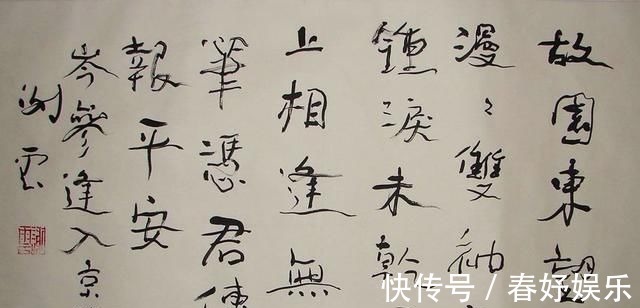 故園東望
漫〻雙袖
鍾淚未乾
上相逢無
筆憑君傳
報平安
岑參逢入京
快传号 / 春妤娱乐